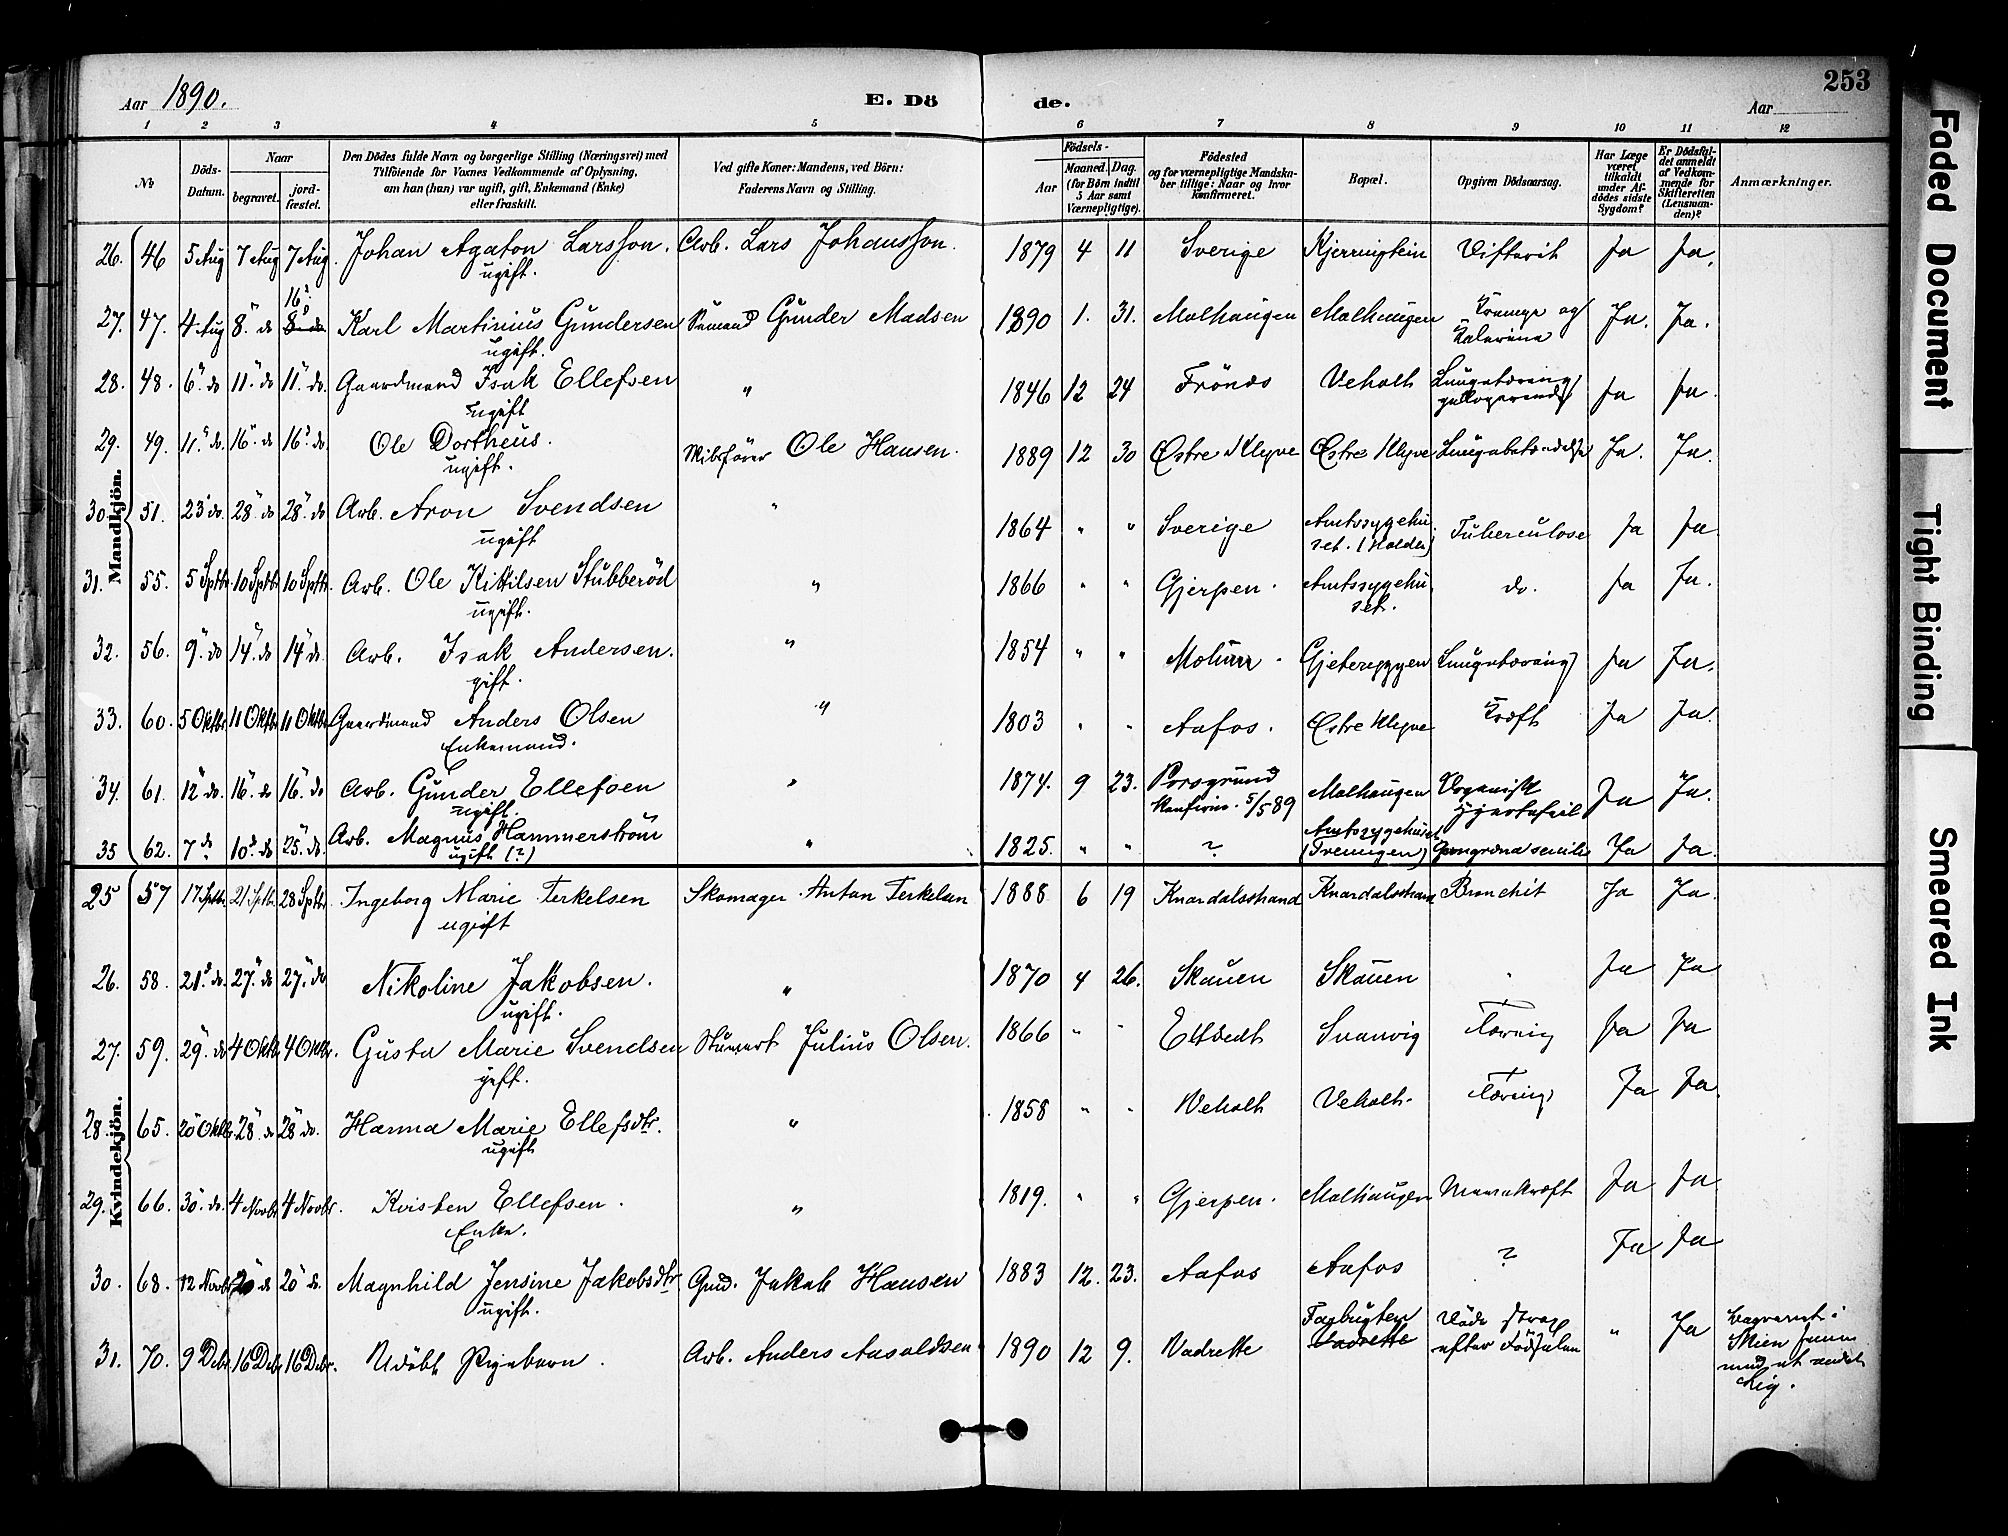 Aar 1890.
E. Döde.
Aar
253
1 2 3 4 5 6 7 8 9 10 11 12
№
Döds-Datum.
Naar
begravet.
jordfæstet.
Den Dödes fulde Navn og borgerlige Stilling (Næringsvei) med Tilföiende for Voxnes Vedkommende af Oplysning, om han (hun) var ugift, gift, Enkemand (Enke) eller fraskilt.
Ved gifte Koner: Mandens, ved Börn: Faderens Navn og Stilling.
Födsels-
Aar
Maaned. Dag. (for Börn indtil 5 Aar samt Værnepligtige).
Födested og for værnepligtige Mandskaber tillige: Naar og hvor konfirmeret.
Bopæl.
Opgiven Dödsaarsag.
Har Læge været tilkaldt under Afdödes sidste Sygdom?
Er Dödsfaldet anmeldt af Vedkommende for Skifteretten (Lensmanden)?
Anmærkninger.
Mandkjön.
26. 46 5 Aug 7 Aug 7 Aug. Johan Agaton Larsson. Arb. Lars Johansson. 1879 4 11 Sverige Ja Ja.
ugift.
16
27. 47. 4 Aug 8. do 8 do Karl Martinius Gundersen Gunder Madsen 1890 1. 31. Molhaugen Molhaugen og Ja. Ja.
ugift.
28. 48. 6 do 11 do 11 do. Gaardmand Isak Ellefsen " 1846 12 24 Veholt Ja Ja.
ugift
29. 49. 11 do. 16 do 16 do. Ole Dortheus. Ole Hansen. 1889 12 30 Østre Klyve Østre Klyve Lungebetændelse Ja. Ja.
ugift.
30. 51. 23 do. 28 do 28 do Arb. Aron Svendsen " 1864 " " Sverige Amtssygehuset. Tuberculose Ja Ja.
ugift
31. 55. 5 Sptbr 10 Sptbr 10 Sptbr. Arb. Ole Kittilsen Stubberöd " 1866 " " Gjerpen. Amtssygehuset. do. Ja Ja.
ugift.
32. 56. 9 do 14. do 14 do. Arb. Isak Andersen. " 1854 " " Gjeteryggen Lungetæring Ja Ja.
gift.
33. 60. 5 Oktbr 11 Oktbr 11 Oktbr Gaardmand Anders Olsen " 1803 " " Aafos. Østre Klyve Kræft Ja Ja.
Enkemand.
34. 61. 12 do. 16. do 16. do Arb. Gunder Ellefsen " 1874. 9 23. Porsgrund Molhaugen Organisk Hjertefeil Ja Ja.
ugift. Konfirm. 5/5 89
35 62. 7 do 10 do 25 do. Arb. Magnus Hammerström " 1825. " " ? Amtssygehuset Gangræna senilis Ja Ja.
ugift (?)
Kvindekjön.
25 57 17 Sptbr 21 Sptbr 28 Sptbr. Ingeborg Marie Terkelsen Skomager Anton Terkelsen 1888 6 19 Knardalsstrand Knardalsstrand Bronchit Ja Ja.
ugift
26. 58. 21 do. 27. do 27. do Nikoline Jakobsen. " 1870 4 26. Skauen Skauen " Ja Ja
ugift.
27. 59. 29. do 4 Oktbr 4 Oktbr. Gusta Marie Svendsen Stuert Julius Olsen. 1866 " " Eltvedt Svanvig Tæring Ja Ja
gift.
28. 65. 20 Oktbr 28 do 28 do. Hanna Marie Ellefsdtr. " 1858 " " Veholt Veholt. Tæring Ja Ja.
ugift
29. 66. 30. do. 4 Novbr 4 Novbr. Kristen Ellefsen. " 1819. " " Gjerpen. Molhaugen Mavekræft Ja Ja
Enke.
30. 68. 12 Novbr 20 do 20 do. Magnhild Jensine Jakobsdtr. Jakob Hansen 1883 12. 23. Aafos Aafos ? Ja Ja
ugift.
31. 70. 9 Debr 16 Debr 16 Debr. Udöbt Pigebarn. Arb. Anders Aasoldsen 1890 12 9. Vadrette Vadrette Döde strax efter Födselen " Ja Begravet i Skien med et andet Lig.
Faded Document
Tight Binding
Smeared Ink